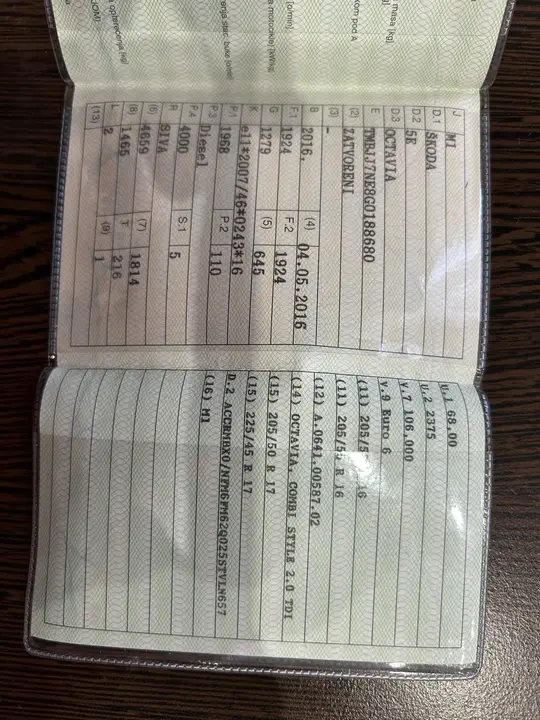 masa [kg]
kom pod A
[o/min]
J M1
D.1 ŠKODA
D.2 5E
D.3 OCTAVIA
E TMBJJ7NE8G0188680
(2) ZATVORENI
(3) -
B 2016. (4) 04.05.2016
F.1 1924 F.2 1924
G 1279 (5) 645
K e11*2007/46*0243*16
P.1 1968 P.2 110
P.3 Diesel
P.4 4000 S.1 5
R SIVA
(6) 4659 (7) 1814
(8) 1465 T 216
L 2 (9) 1
(13)
U.1 68,00
U.2 2375
V.7 106,000
V.9 Euro 6
(11) 205/55 R 16
(11) 205/55 R 16
(12) A.0641.00587.02
(14) OCTAVIA, COMBI STYLE 2.0 TDI
(15) 205/50 R 17
(15) 225/45 R 17
(16) M1